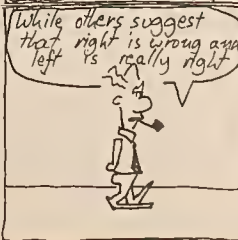 While others suggest
that right is wrong and
left is really right